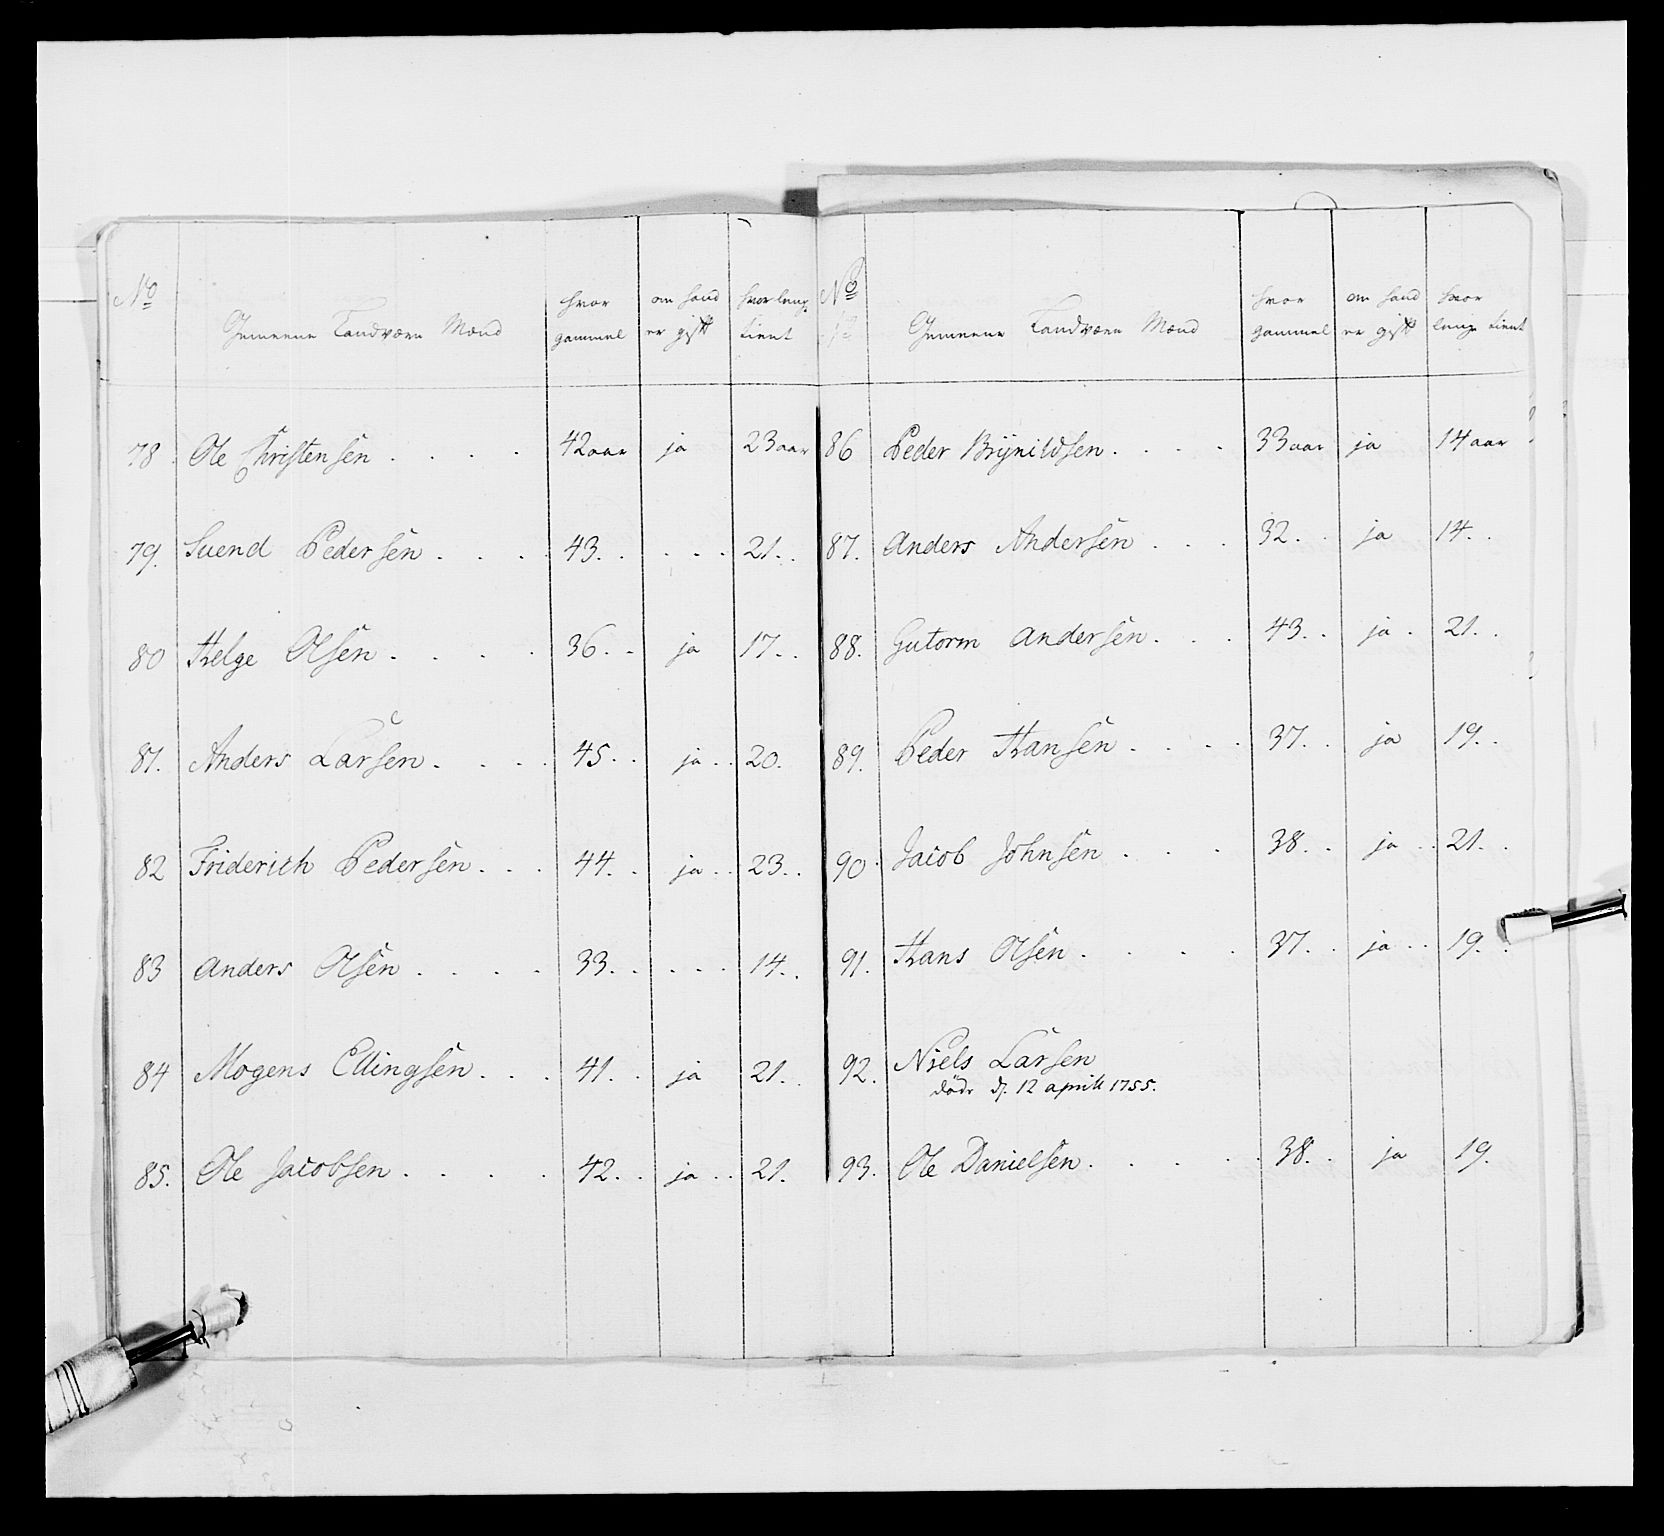 No
Gemeene Landværn Mænd
hvor gammel
om hand er gift
hvor leng tient
78. Ole Christensen . . . . 42 aar ja 23 aar
79. Suend Pedersen . . . . 43. . . . . 21. .
80 Helge Olsen . . . . 36. . ja 17. .
81. Anders Larsen . . . . 45. . ja . . 20.
82 Friderich Pedersen . . . 44. . ja . . 23. .
83 Anders Olsen . . . . 33. . . . . 14. .
84 Mogens Ellingsen . . . 41. . ja 21. .
85. Ole Jacobsen . . . . 42. . ja . . 21.
No
Gemeene Landværn Mænd
hvor gammel
om hand er gift
hvor lenge tient
86 Peder Brÿnildsen . . . . 33 aar ja 14 aar
87. Anders Andersen . . . 32. . ja 14. .
88. Gutorm Andersen . . . 43. . ja . 21. .
89. Peder Hansen . . . . 37. . ja 19. .
90. Jacob Johnsen . . . 38. . ja . . 21. .
91. Hans Olsen . . . . 37. . ja . . 19. .
92. Niels Larsen
døde d. 12 april 1755.
93. Ole Danielsen . . . . . 38. . ja 19.